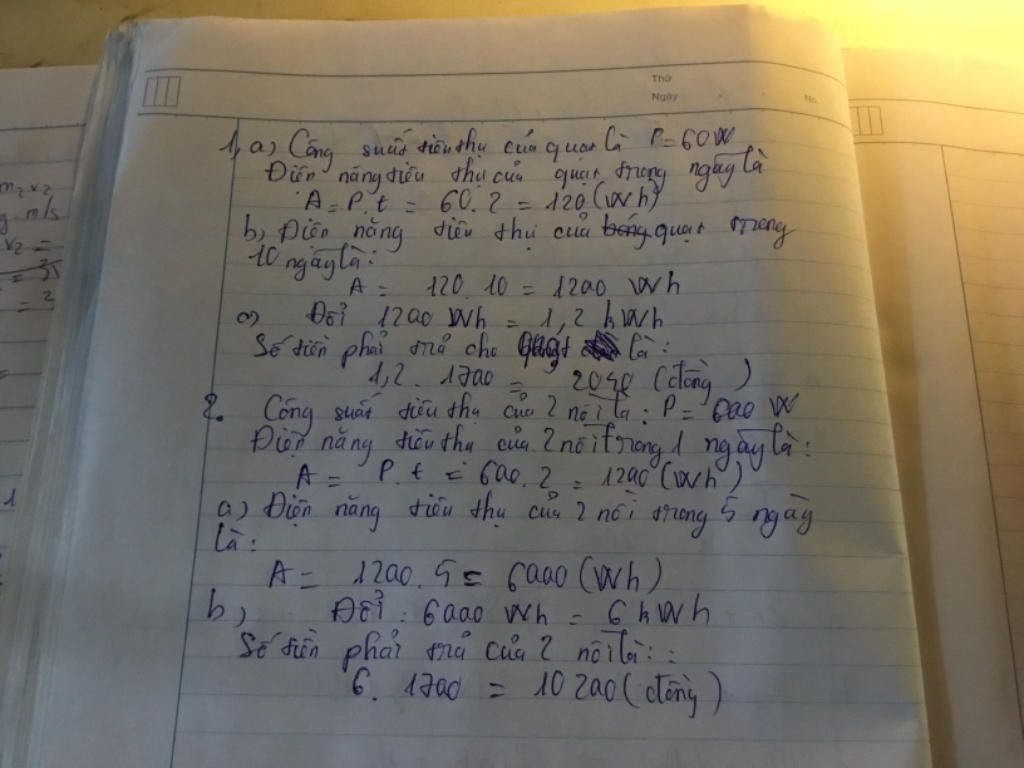 Thứ
Ngày No.
1, a) Công suất tiêu thụ của quạt là P = 60 W
Điện năng tiêu thụ của quạt trong ngày là
A = P. t = 60. 2 = 120 (Wh)
b, Điện năng tiêu thụ của bóng quạt trong
10 ngày là:
A = 120. 10 = 1200 Wh
c) Đổi 1200 Wh = 1,2 kWh
Số tiền phải trả cho quạt là:
1,2 . 1700 = 2040 (đồng)
2. Công suất tiêu thụ của 2 nồi là: P = 600 W
Điện năng tiêu thụ của 2 nồi trong 1 ngày là:
A = P. t = 600. 2 = 1200 (Wh)
a) Điện năng tiêu thụ của 2 nồi trong 5 ngày
là:
A = 1200. 5 = 6000 (Wh)
b, Đổi: 6000 Wh = 6 kWh
Số tiền phải trả của 2 nồi là::
6. 1700 = 10 200 (đồng)
m/s